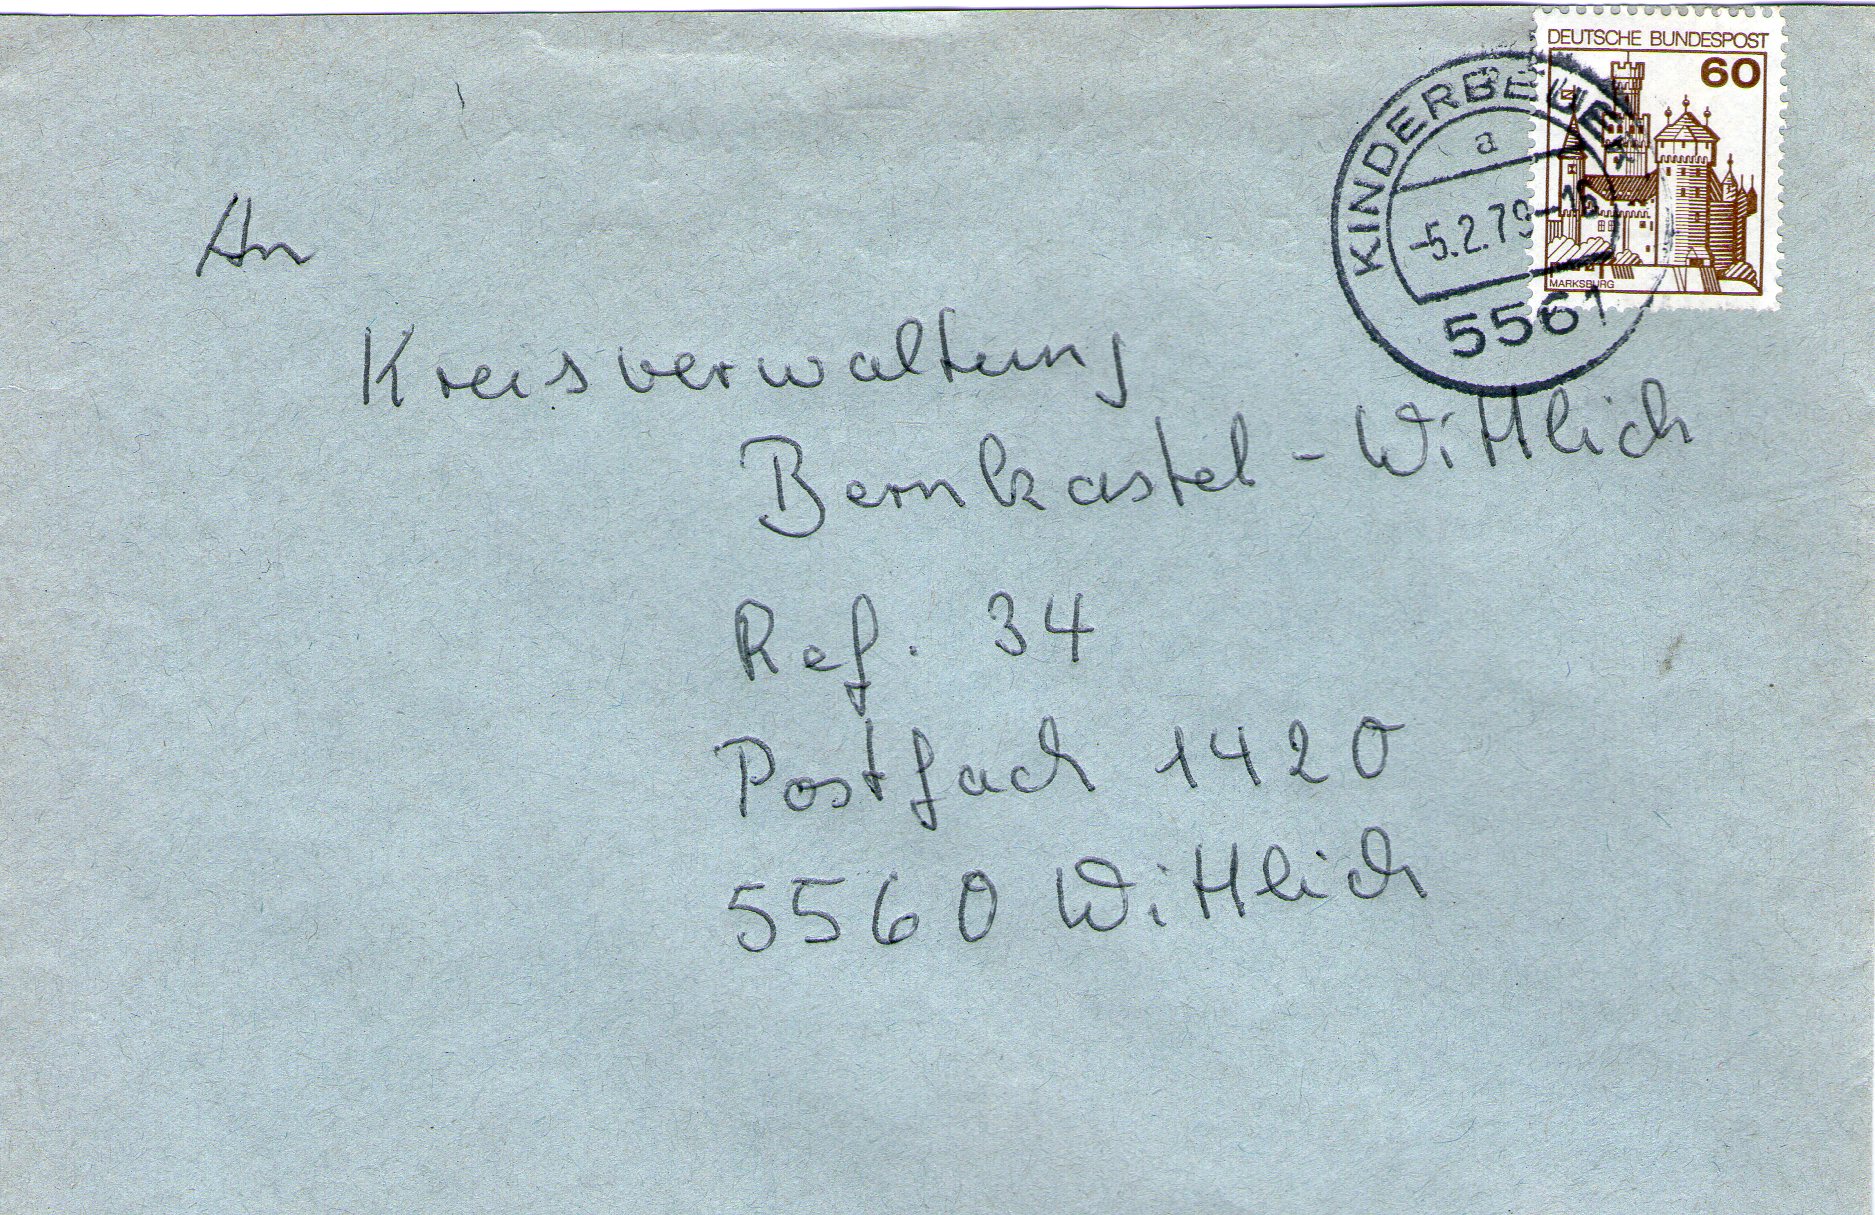 DEUTSCHE BUNDESPOST
60
MARKSBURG
KINDERBEUERN
a
-5.2.79-16
5561
An
Kreisverwaltung
Bernkastel-Wittlich
Ref. 34
Postfach 1420
5560 Wittlich